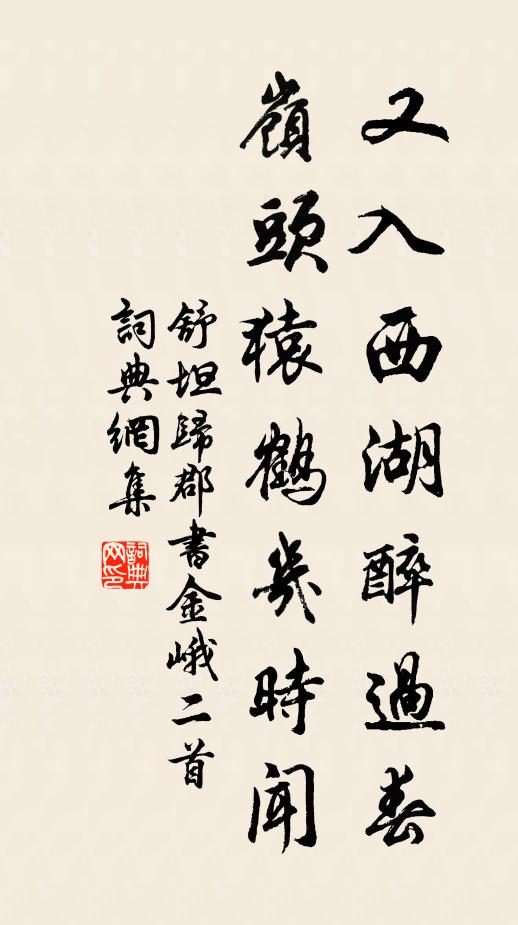 又入西湖醉過春
嶺頭猿鶴幾時聞
舒坦歸郡書金峨二首
詞典網集
詞典网印